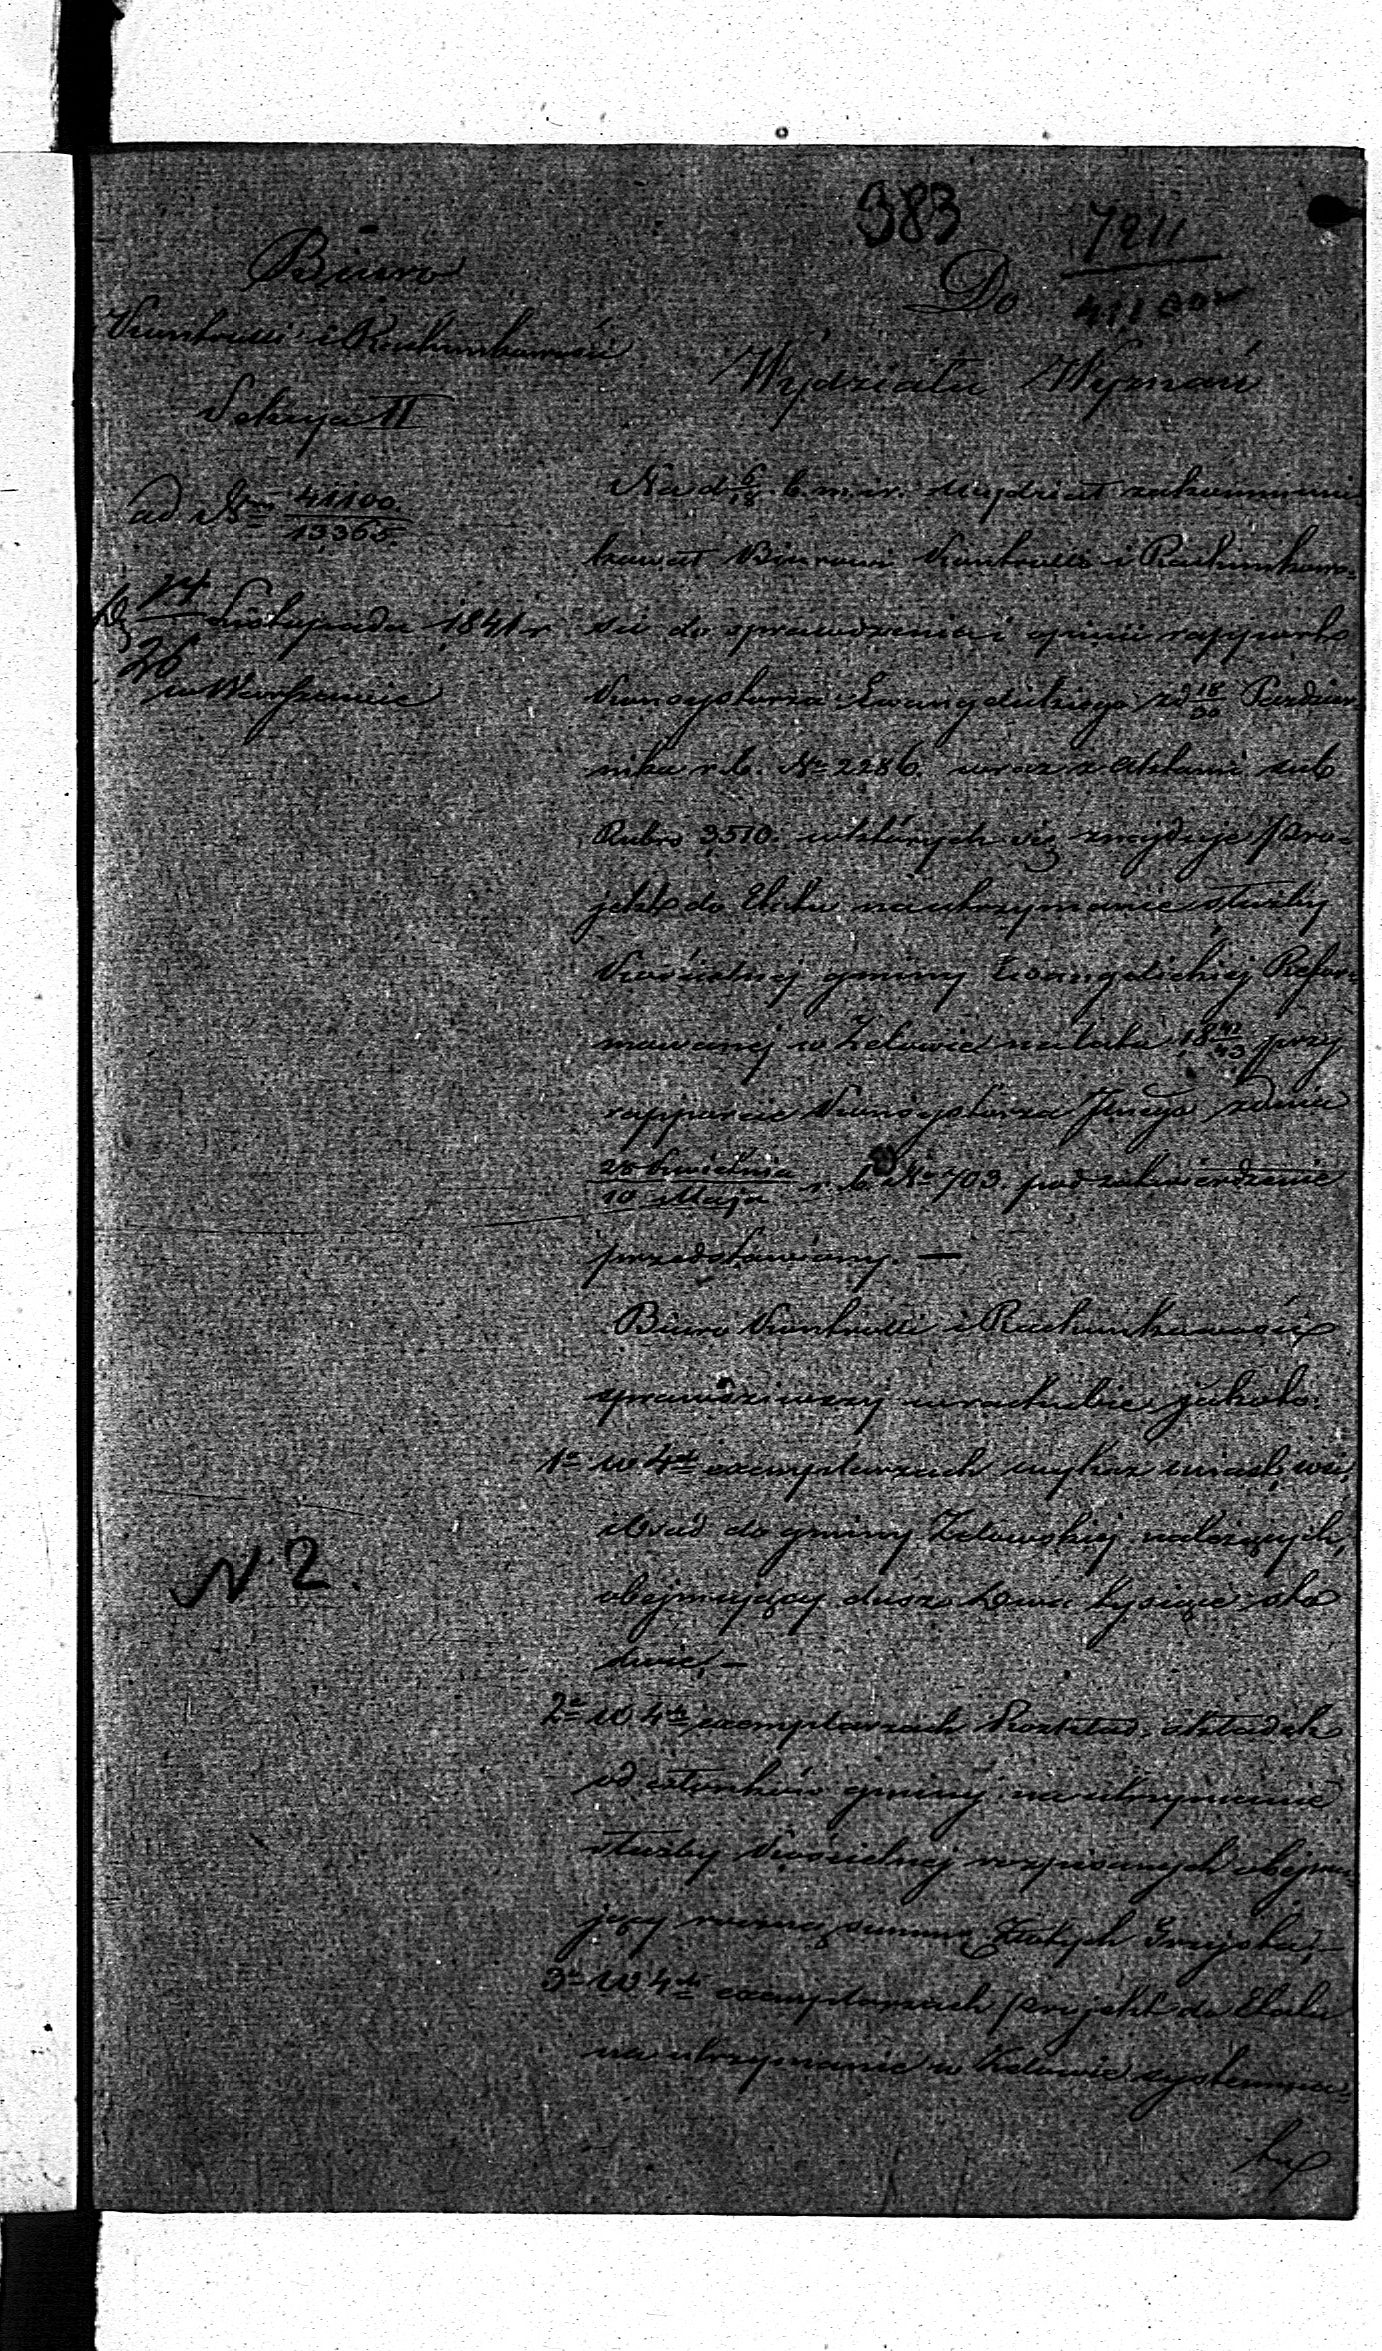 383
7211
41100
Biuro
Kontrolli i Rachunkowości
Sekcya II
ad Nrum 41100./13365.
14/26 Listopada 1841 r
w Warszawie
Do
Wydziału Wyznań
Na d 6/18 b. m. i r. Wydział zakommuni-
kował Biurowi Kontrolli i Rachunkowo-
ści do sprawdzenia i opinii rapport
Konsystorza Ewangelickiego z d 18/30 Paździer-
nika r. b. No 2286. wraz z Aktami sub
Rubro 3510. w których się znajduje pro-
jekt do Etatu na utrzymanie służby
Kościelnej gminy Ewangelickiej Refor-
mowanej w Zelowie na lata 18 42/43 przy
rapporcie Konsystorza Jlnego z dnia
28 Kwietnia/10 Maja r. b. No 703. pod zatwierdzenie
przedstawiony. —
Biuro Kontrolli i Rachunkowości
sprawdziwszy w rachubie jako to:
1e W 4ch exemplarzach wykaz miast, wsi,
i Osad do gminy Zelowskiej należących,
obejmujący dusz Dwa tysiące sto
dwie, —
2e W 4ch exemplarzach Rozkład składek
od członków gminy na utrzymanie
służby Kościelnej rozpisanych obejmu-
jący roczną summę Złotych Trzysta, —
3e W 4ch exemplarzach projekt do Etatu
na utrzymanie w Zelowie systemma-
N 2.